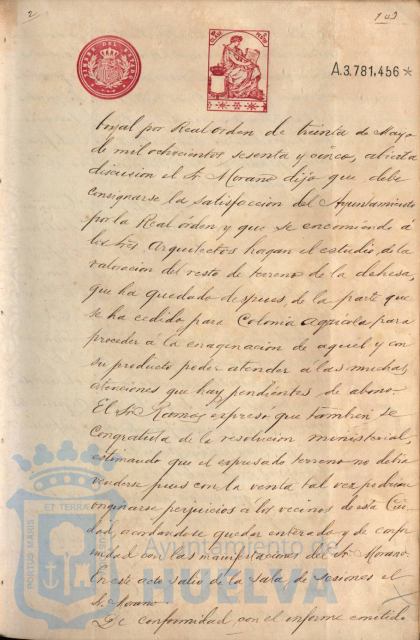 2
A.3.781,456*
TIMBRE DEL ESTADO
boyal por Real orden de treinta de Mayo
de mil ochocientos sesenta y cinco, abierta
discusion el Sr. Moraño dijo que debe
consignarse la satisfaccion del Ayuntamiento
por la Real órden y que se encomiende á
los Sres Arquitectos hagan el estudio, de la
valoracion del resto de terreno de la dehesa,
que ha quedado despues, de la parte que
se ha cedido para Colonia agricola para
proceder á la enagenacion de aquel y con
su producto poder atender á las muchas
atenciones que hay pendientes de abono.
El Sr. Ramos expresó que tambien se
congratula de la resolucion ministerial,
estimando que el expresado terreno no debia
venderse pues con la venta tal vez pudieran
originarse perjuicios á los vecinos de esta Ciu-
dad, acordandose quedar enterado y de confor
midad con las manifestaciones del Sr. Morano.
En este acto salio de la Sala de Sesiones el
Sr. Morano
De conformidad con el informe emitido
PORTUS MARIS
ET TERRAE
Ayuntamiento de
HUELVA